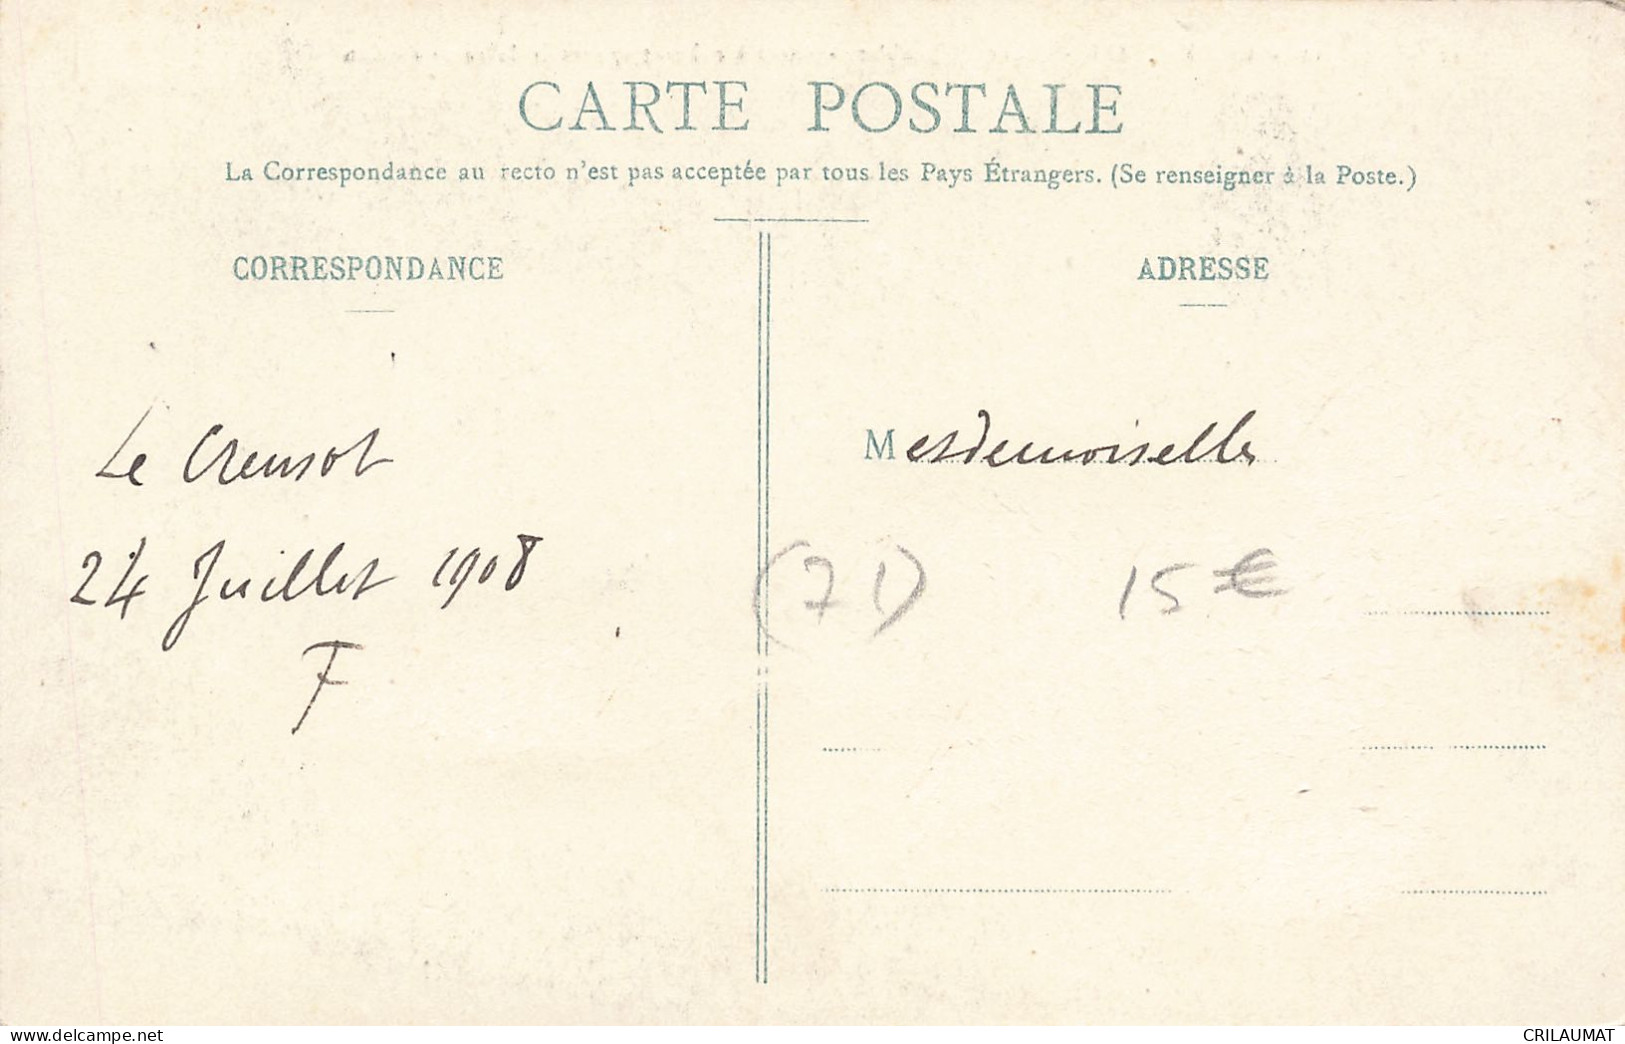 CARTE POSTALE
La Correspondance au recto n'est pas acceptée par tous les Pays Étrangers. (Se renseigner à la Poste.)
CORRESPONDANCE
Le Creusot
24 Juillet 1908
F
ADRESSE
Mesdemoiselles
(71) 15 €
www.delcampe.net
CRILAUMAT